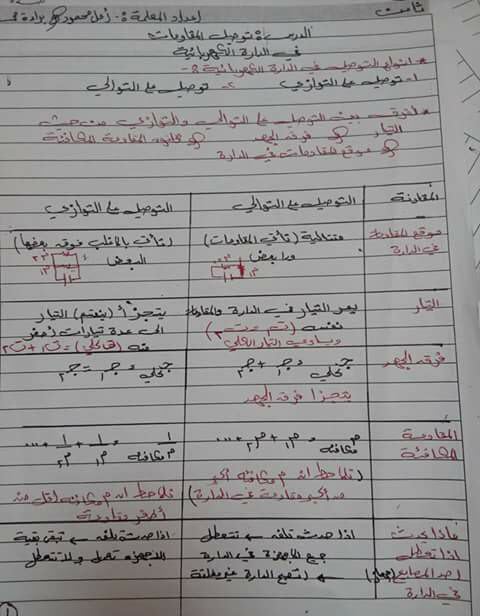 ثامن
إعداد المعلمة: أمل محمود
الدرس: توصيل المقاومات
في الدارة الكهربائية
* أنواع التوصيل في الدارة الكهربائية :-
١- توصيل على التوازي ٢- توصيل على التوالي
* الفرق بين التوصيل على التوالي والتوازي من حيث
التيار فرق الجهد قانون المقاومة المكافئة
موقع المقاومات في الدارة
المقارنة التوصيل على التوالي التوصيل على التوازي
موقع المقاومة في الدارة
متتالية (تأتي المقاومات) وراء بعض
(تأتي بالأغلب فوق بعضها) البعض
التيار
يمر التيار في الدارة والمقاومة نفسه
ويساوي التيار الكلي
يتجزأ (ينقسم) التيار الى عدة تيارات أصغر
منه (ت كلي) = ت١ + ت٢
فرق الجهد
جـ كلي = جـ١ + جـ٢
يتجزأ فرق الجهد
جـ كلي = جـ١ = جـ٢
المقاومة المكافئة
م مكافئة = م١ + م٢ + ...
(نلاحظ ان م مكافئة أكبر
من أكبر مقاومة في الدارة)
١/م مكافئة = ١/م١ + ١/م٢ + ...
نلاحظ ان م مكافئة أقل من
أصغر مقاومة
ماذا يحدث اذا تعطل احد المصابيح في الدارة
اذا حدث تلف ← تتعطل
جميع الأجهزة في الدارة
← (تصبح الدارة غير مغلقة
اذا حدث تلف ← تبقى بقية
الاجهزة تعمل ولا تتعطل